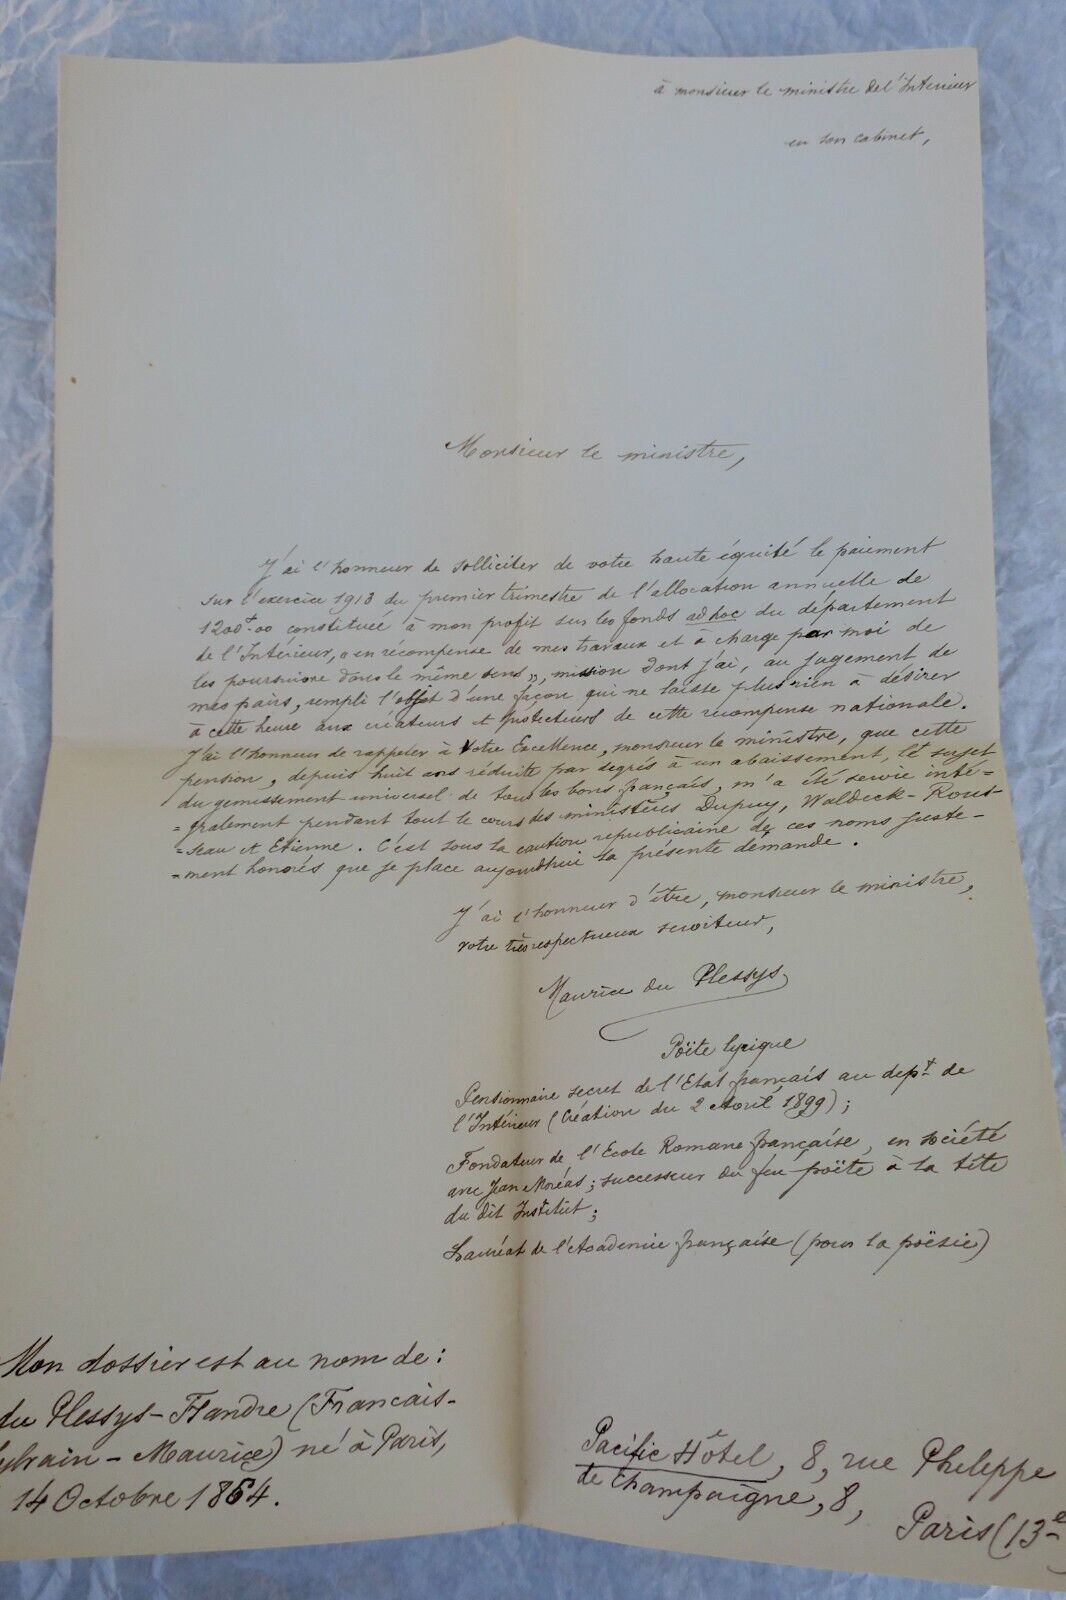 à monsieur le ministre de l'Intérieur
en son cabinet,
Monsieur le ministre,
J'ai l'honneur de solliciter de votre haute équité le paiement
sur l'exercice 1913 du premier trimestre de l'allocation annuelle de
1200f.00 constituée à mon profit sur les fonds ad hoc du département
de l'Intérieur, « en récompense de mes travaux et à charge par moi de
les poursuivre dans le même sens », mission dont j'ai, au jugement de
mes pairs, rempli l'objet d'une façon qui ne laisse plus rien à désirer
à cette heure aux créateurs et protecteurs de cette récompense nationale.
J'ai l'honneur de rappeler à Votre Excellence, monsieur le ministre, que cette
pension, depuis huit ans réduite par degrés à un abaissement, sujet
du gémissement universel de tous les bons français, m'a été servie inté=
=gralement pendant tout le cours des ministères Dupuy, Waldeck-Rous-
=seau et Etienne. C'est sous la caution républicaine de ces noms juste-
=ment honorés que je place aujourdhui la présente demande.
J'ai l'honneur d'être, monsieur le ministre,
votre très respectueux serviteur,
Maurice du Plessys
Poëte lyrique
Pensionnaire secret de l'Etat français au dept de
l'Intérieur (Création du 2 Avril 1899);
Fondateur de l'Ecole Romane française, en société
avec Jean Moréas; successeur du feu poëte à la tête
du dit Institut;
Lauréat de l'Académie française (pour la poësie)
Mon dossier est au nom de:
du Plessys-Flandre (Francois-
Sylvain-Maurice) né à Paris,
14 Octobre 1864.
Pacific Hôtel, 8, rue Phelippe
de Champaigne, 8,
Paris (13e